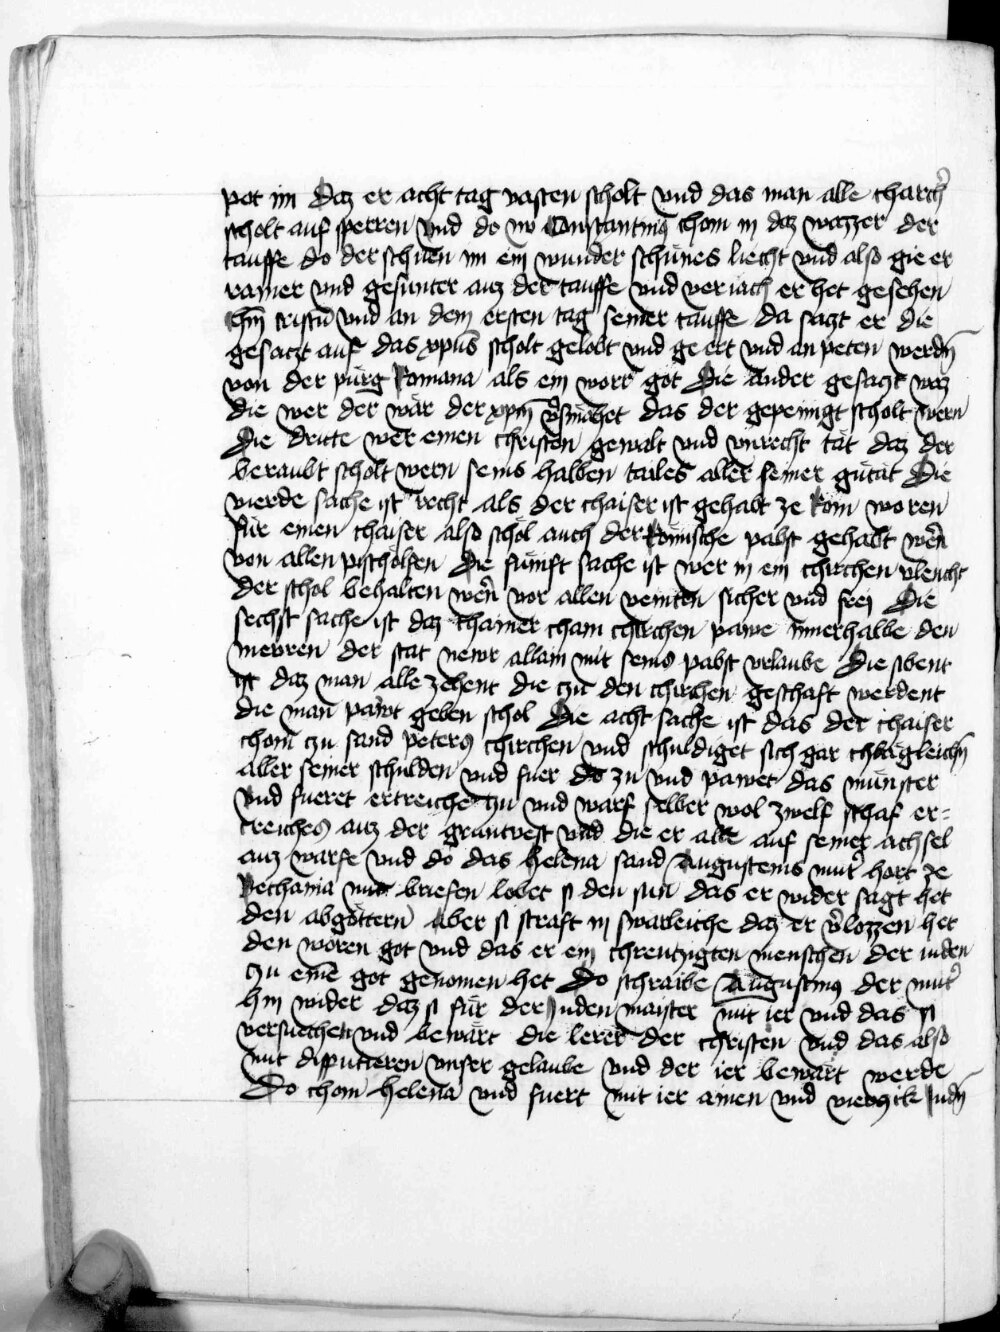 pot im Daz er acht tag vasten scholt vnd das man alle charch̉
scholt auf sperren vnd do nv Constantinꝰ chom in daz wazzer der
tauffe do der schien im ein wunder schönes liecht vnd also gie er
rainer vnd gesunter auz der tauffe vnd veriach er het gesehen
ihm̄ cristū vnd an dem ersten tag seiner tauffe da sazt er die
gesaczt auf das xpūs scholt gelobt vnd ge ert vnd an peten werdn̄
von der pürg Romana als ein worr got Die ander gesaczt waz
die wer der wär der xpm̄ v̉smähet das der gepeinigt scholt wern
Die dritte wer einen christen gewalt vnd vnrecht tät daz der
beraubt scholt wern seins halben tailes aller seiner gütät Die
vierde sache ist recht als der chaiser ist gehabt ze Rom woren
für einen chaiser also schol auch der Römische pabst gehabt wēn
von allen pischolfen Die fünift sache ist wer in ein chirchen vleucht
der schol behalten wēn vor allen veinten sicher vnd frei Die
sechst sache ist daz chainer chain chirchen pawe innerhalbe den
mevren der stat newr allain mit seins pabst vrlaube Die sibent
ist daz man alle zehent die czu den chirchen geschaft werdent
die man pawt geben schol Die acht sache ist das der chaiser
chom czu sand peters chirchen vnd schuldiget sich gar chlägleichn̄
aller seiner schulden vnd fuer do zu vnd pawet das münster
vnd fueret ertreiche czu vnd warf selber wol zwelf schaf er=
treiches auz der gruntvest vnd die er alle auf seiner achsel
auz warfe vnd do das helena sand Augustenis mut̉ hort ze
Bethania mit briefen lobet si den sun das er wider sagt het
den abgöttern aber si straft in swarleiche daz er v̉lozzen het
den woren got vnd das er ein chreutzigten menschen der iuden
czu einē got genomen het Do schraibe Augustinꝰ der mut̉
hin wider daz si für der Juden maister mit ier vnd das si
versuechen vnd bewärt die lerer der christen vnd das also
mit disputieren vnser gelaube vnd der ier bewärt werde
Do chom helena vnd fuert mit ier ainen vnd vierczik Judn̄